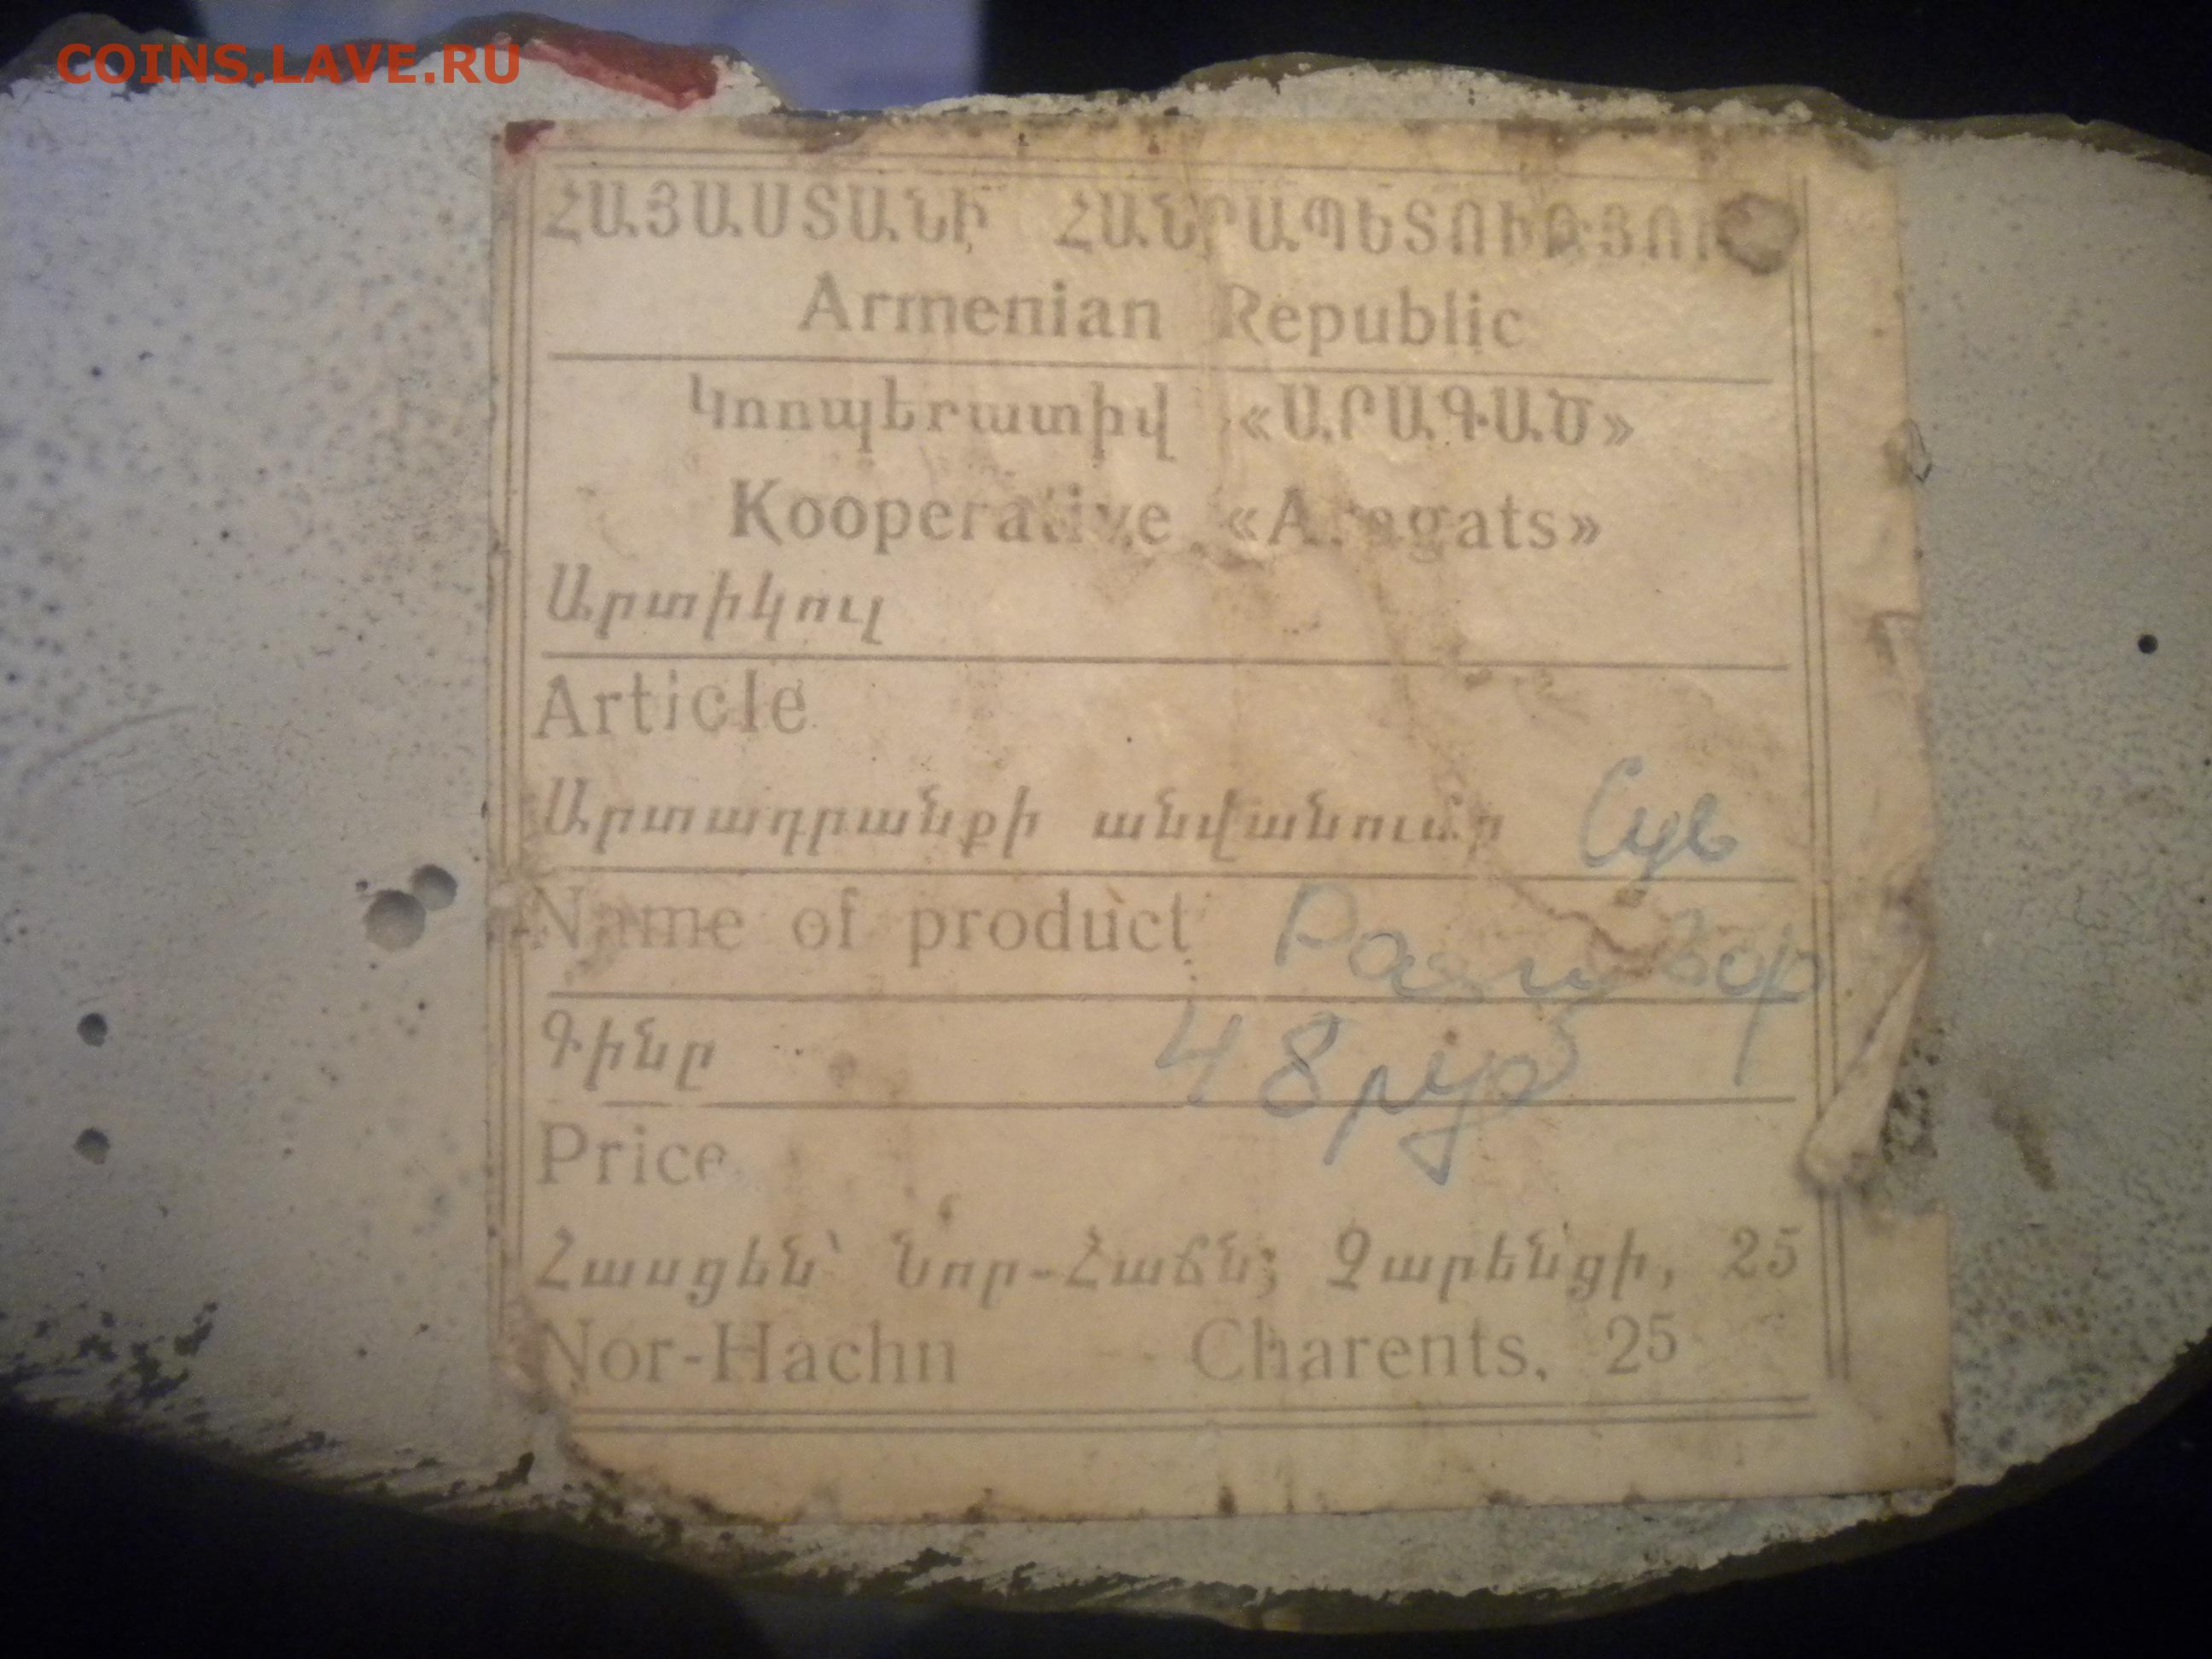 COINS.LAVE.RU
ՀԱՅԱՍՏԱՆԻ ՀԱՆՐԱՊԵՏՈՒԹՅՈՒ
Armenian Republic
Կոոպերատիվ «ԱՐԱԳԱԾ»
Kooperative «Aragats»
Արտիկուլ
Article
Արտադրանքի անվանումը Сув
Name of product
Գինը 48 руб
Price
Հասցեն՝ Նոր-Հաճն; Չարենցի, 25
Nor-Hachn Charents, 25